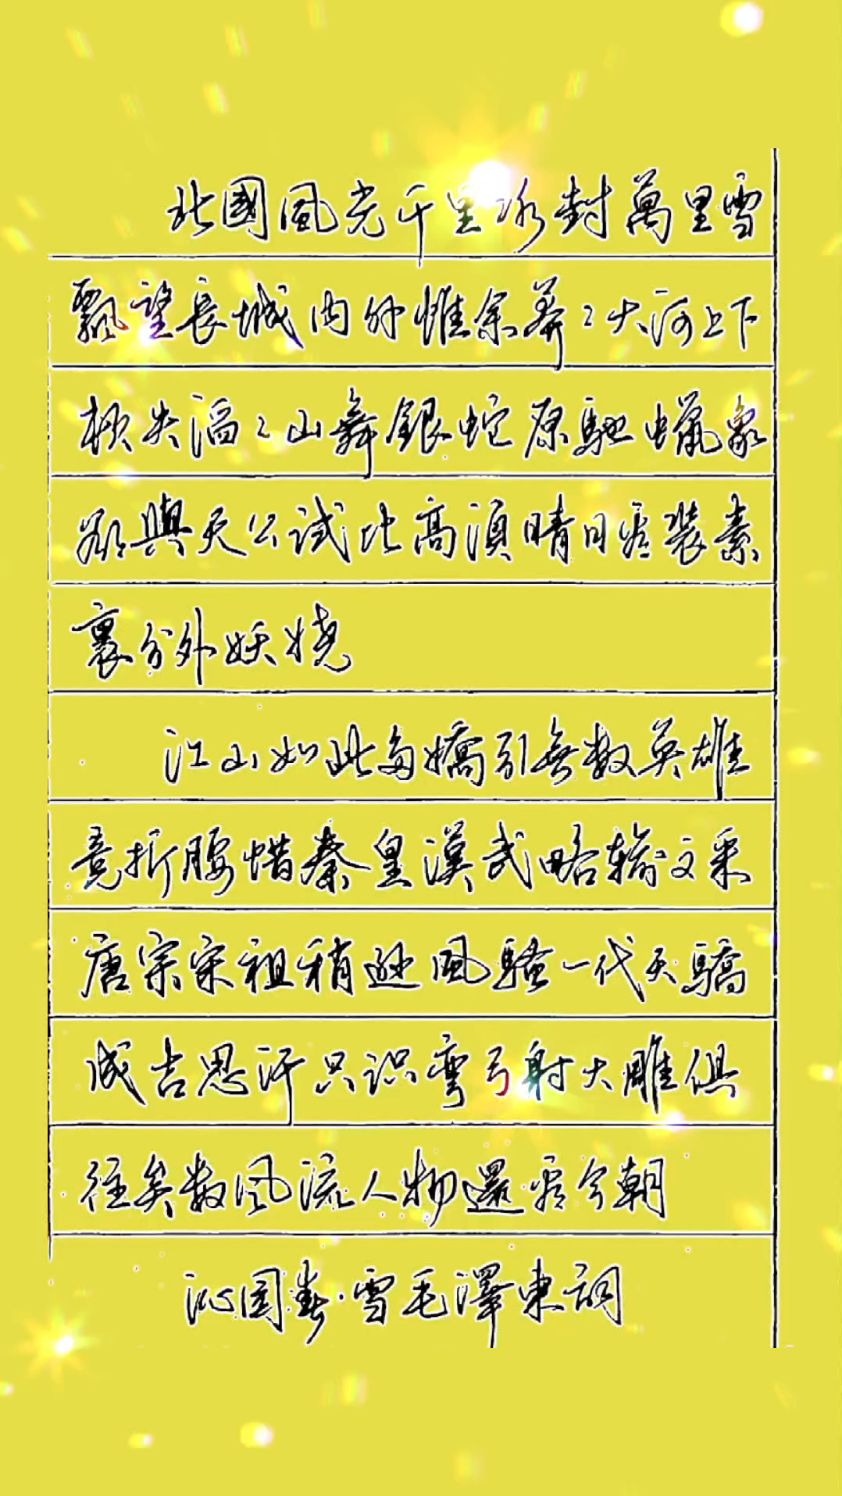 北國風光千里冰封萬里雪
飄望長城內外惟余莽〻大河上下
頓失滔〻山舞銀蛇原馳蠟象
欲與天公试比高須晴日看裝素
裹分外妖娆
江山如此多嬌引無數英雄
竟折腰惜秦皇漢武略输文采
唐宗宋祖稍逊風騷一代天驕
成吉思汗只识彎弓射大雕俱
往矣數風流人物還看今朝
沁园春·雪毛澤東詞